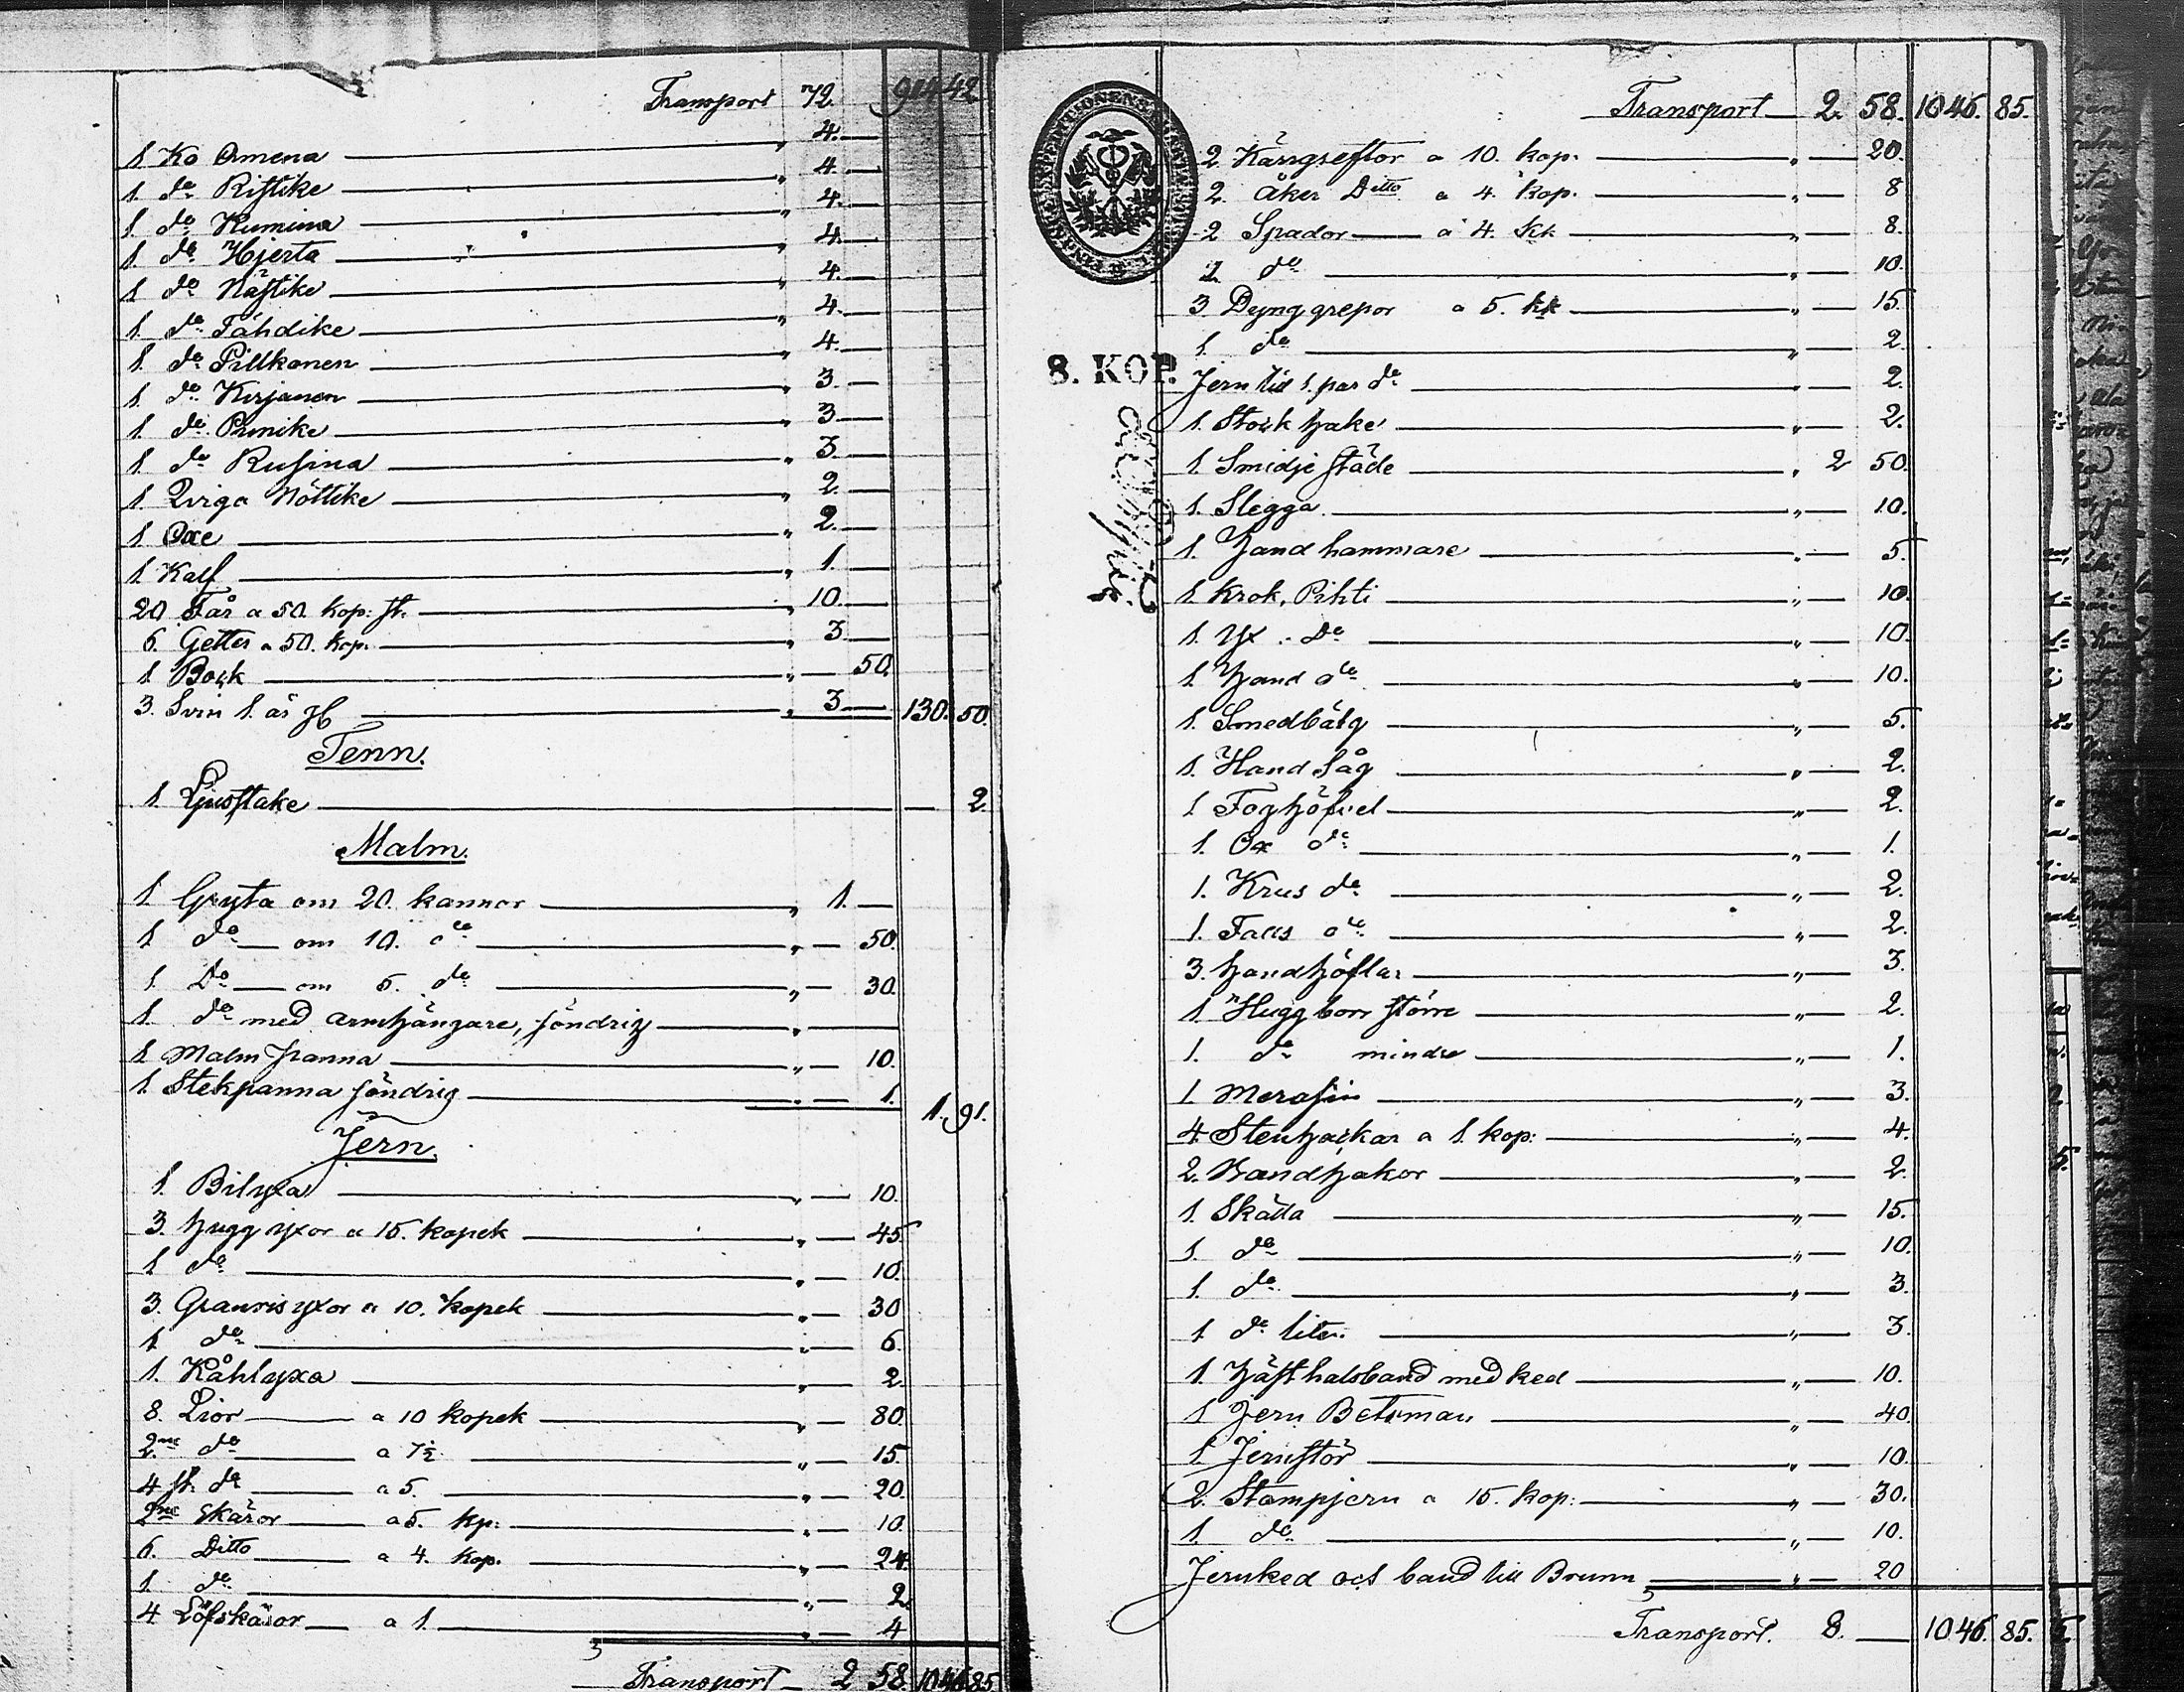 Transport 72. 914 42
1 Ko Omena " 4.
1. do Ristike " 4.
1. do Kumina " 4.
1. do Hjerta " 4.
1 do Nästike " 4.
1. do Tähdike " 4.
1. do Pillkonen " 4.
1. do Kirjanen " 3
1. do Punike " 3
1. do Rusina " 3.
1 Qviga Nöttike " 2.
1 Oxe " 2.
1 Kalf " 1.
20 Får a 50. kop: st. " 10.
6. Getter a 50. kop. " 3
1 Bock " 50.
3. Svin 1. år gl. " 3 130. 50.
Tenn.
1 Ljusstake 2.
Malm.
1 Gryta om 20. kannor " 1.
1 do om 10. do " 50.
1. Do om 6. do " 30.
1. do med armhängare, söndrig "
1 Malm panna " 10.
1. Stekpanna söndrig " 1. 1. 91.
Jern.
1. Bilyxa " 10.
3. huggyxor a 15. kopek " 45.
1 do " 10.
3. Granrisyxor a 10. kopek " 30
1 do " 6.
1. Kåhlyxa " 2
8. Lior a 10 kopek " 80.
2ne do a 7½ " 15.
4 st. do a 5. " 20.
2ne Skäror a 5. kp: " 10.
6. Ditto a 4. kop. " 24.
1. do " 2.
4 Löfskäror a 1. " 4
Transport 2 58. 1046 85
Transport 2. 58. 1046. 85.
2. a 10. kop. " 20.
2. Åker Ditto a 4. kop. " 8
2 Spador a 4. kk " 8.
1. do " 10.
3 Dynggrepor a 5. kk " 15.
1. do " 2.
8. KOP.
Jern till 1. par do " 2.
1. Stock hake " 2.
1. Smidje städe " 2 50.
1. Slegga " 10.
1. Handhammare " 5.
1. Krok, Pihti " 10.
1. Yx Do " 10.
1 Hand do " 10.
1. Smedbälg " 5.
1. Hand såg " 2.
1 Foghöfvel " 2.
1. Ox do " 1.
1. Krus do " 2.
1. Falls do " 2.
3. handhöflar " 3.
1 Huggborr större " 2.
1. do mindre " 1.
1 " 3.
4. Stenhackar a 1. kop: " 4.
2. Handhakor " 2.
1. Skälla " 15.
1. do " 10.
1. do " 3.
1 do liten " 3.
1. Hästhalsband med ked " 10.
1 Jern Betsman " 40
1 Jernstör " 10.
2. Stampjern a 15. kop: " 30.
1. do " 10.
Jernked och band till Brunn " 20
Transport. 8. 1046. 85.